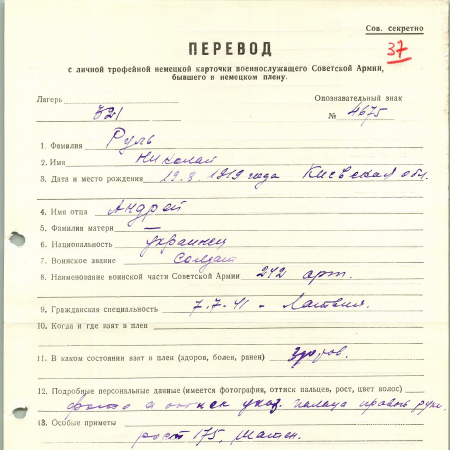 Сов. секретно
ПЕРЕВОД
37
с личной трофейной немецкой карточки военнослужащего Советской Армии,
бывшего в немецком плену.
Лагерь Опознавательный знак
321 № 4675
1. Фамилия Руль
2. Имя Николай
3. Дата и место рождения 19.3.1919 года Киевская обл.
4. Имя отца Андрей
5. Фамилия матери —
6. Национальность украинец
7. Воинское звание солдат
8. Наименование воинской части Советской Армии 242 арт.
9. Гражданская специальность
7.7.41 - Латвия.
10. Когда и где взят в плен
11. В каком состоянии взят в плен (здоров, болен, ранен) здоров.
12. Подробные персональные данные (имеется фотография, оттиск пальцев, рост, цвет волос)
фото и оттиск указ. пальца правой руки.
13. Особые приметы
рост 175,